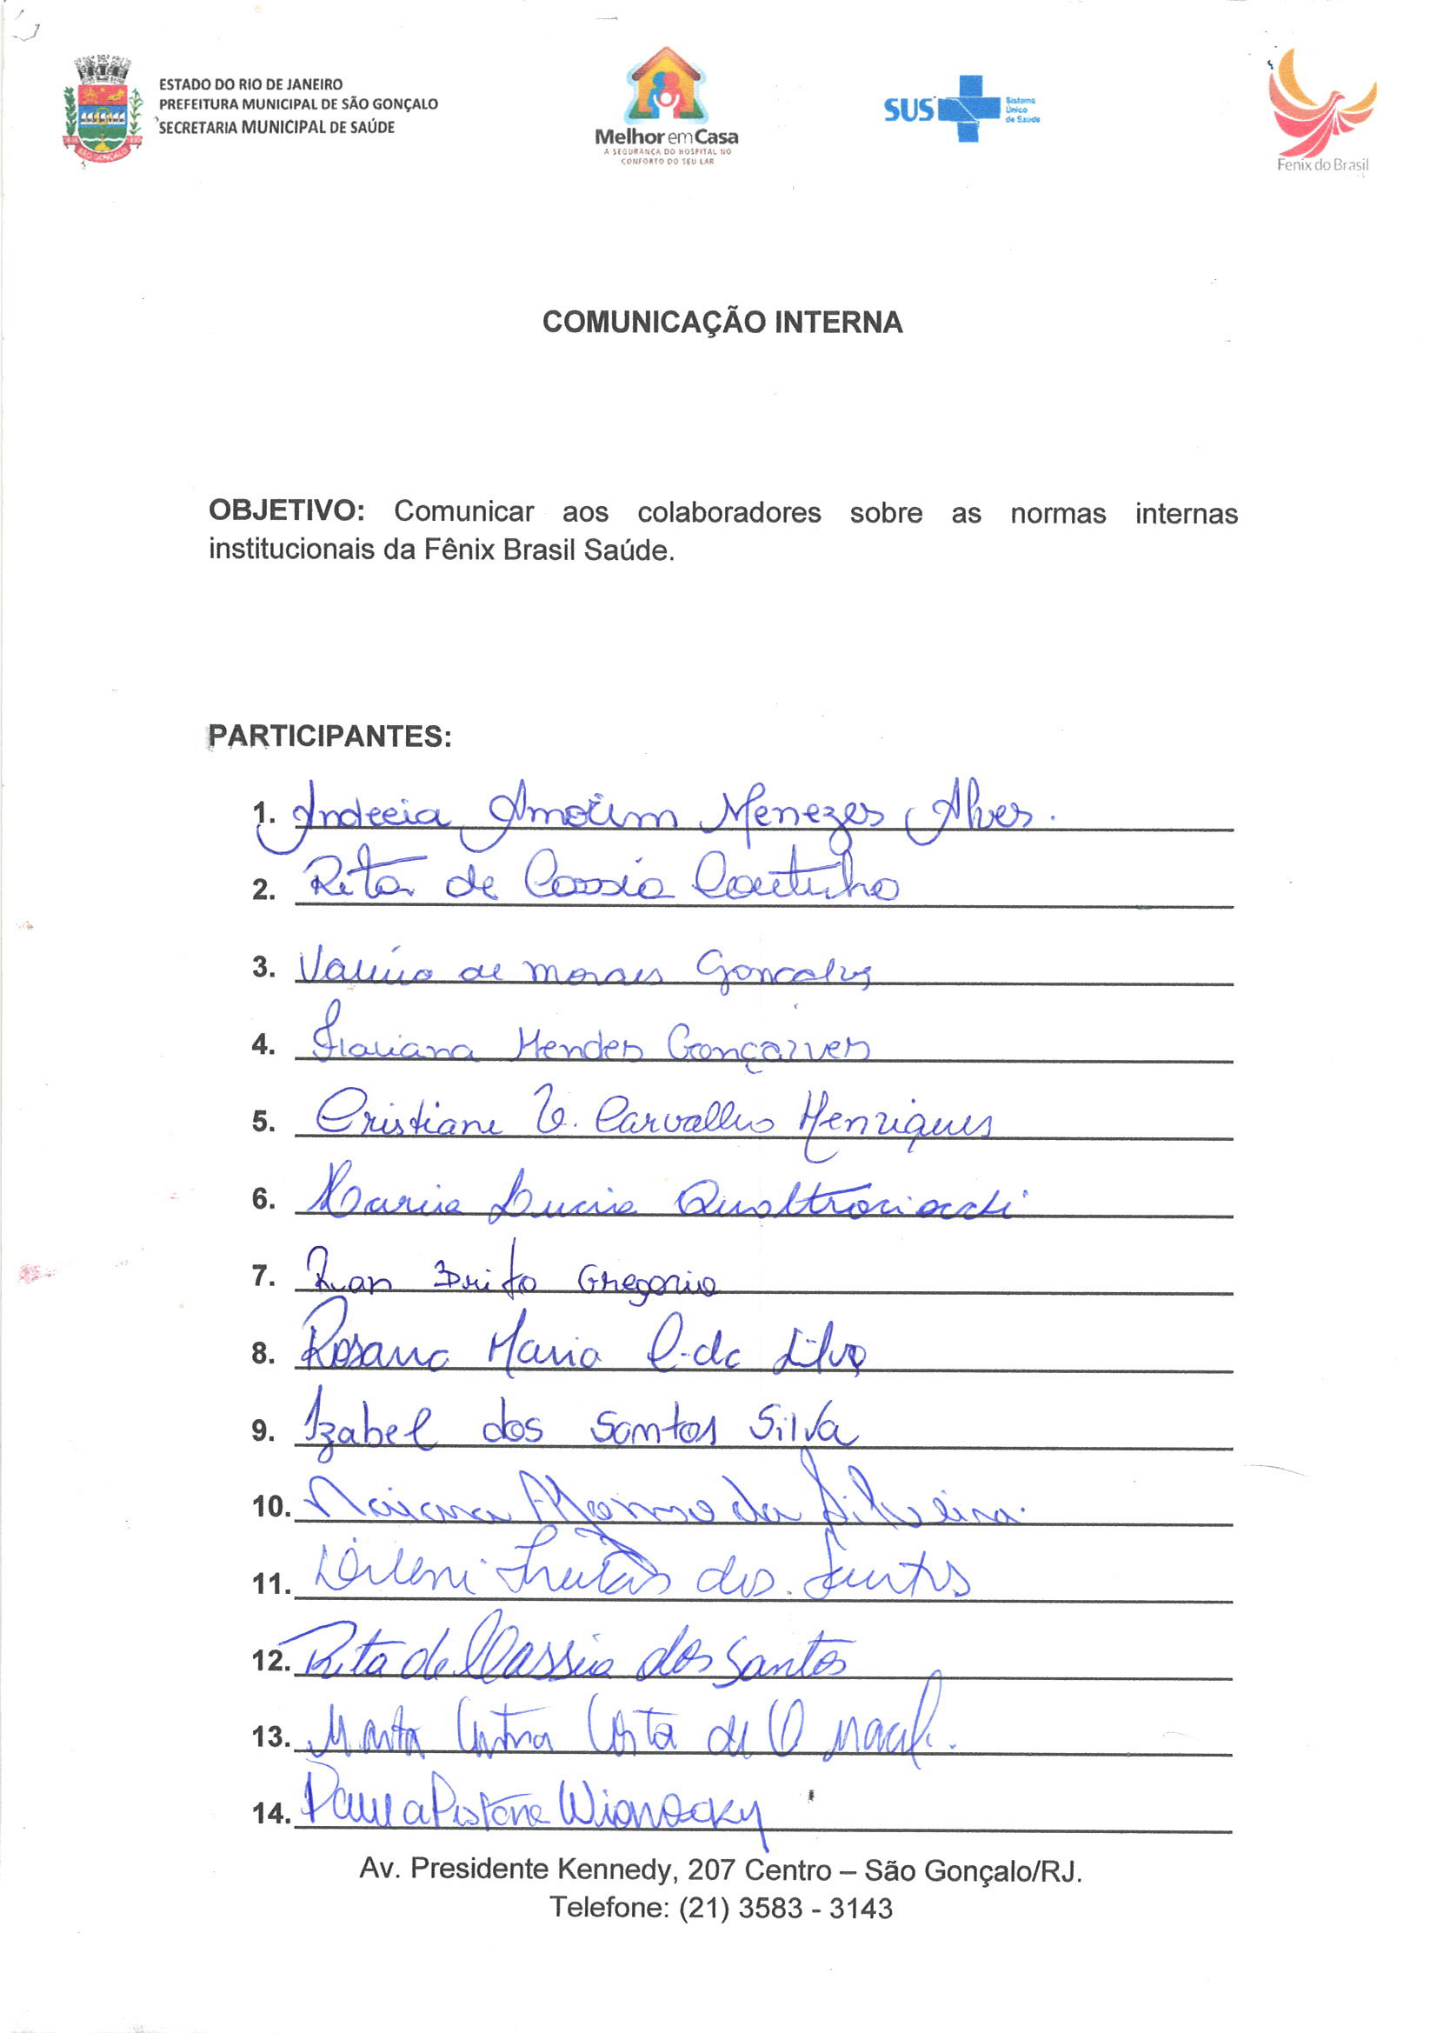 ESTADO DO RIO DE JANEIRO
PREFEITURA MUNICIPAL DE SÃO GONÇALO
SECRETARIA MUNICIPAL DE SAÚDE
SÃO GONÇALO
Melhor em Casa
A SEGURANÇA DO HOSPITAL NO
CONFORTO DO SEU LAR
SUS
Sistema
Único
de Saúde
Fenix do Brasil
COMUNICAÇÃO INTERNA
OBJETIVO: Comunicar aos colaboradores sobre as normas internas
institucionais da Fênix Brasil Saúde.
PARTICIPANTES:
1. Andreia Amorim Menezes Alves.
2. Rita de Cassia Coutinho
3. Valéria de Moraes Gonçalves
4. Flaviana Mendes Gonçalves
5. Cristiane V. Carvalho Henriques
6. Maria Lucia Quattrociocchi
7. Brito Gregorio
8. Rosana Maria C. da Silva
9. Izabel dos Santos Silva
10. Naiana Afonso da Silveira.
11. Freitas dos Santos
12. Rita de Cassia dos Santos
13. Costa de
14. Paula Pistone
Av. Presidente Kennedy, 207 Centro – São Gonçalo/RJ.
Telefone: (21) 3583 - 3143